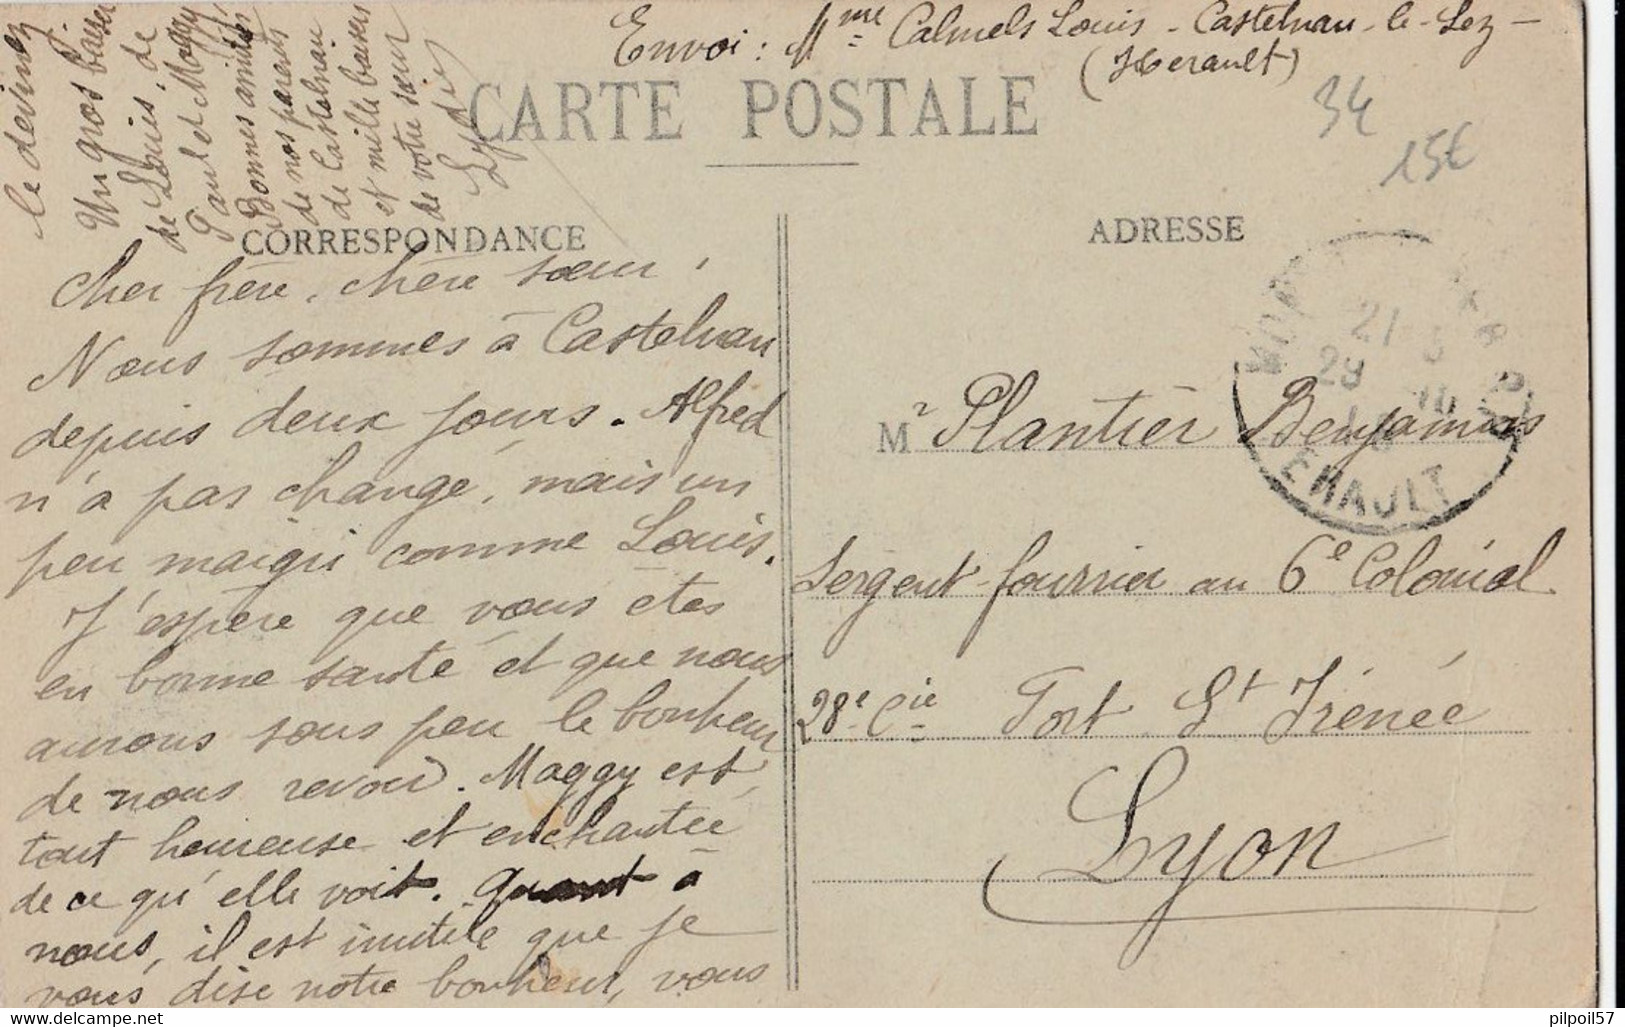 Envoi : Mme Calmels Louis - Castelnau-le-Lez -
(Hérault)
CARTE POSTALE
34
15€
CORRESPONDANCE
ADRESSE
Cher frère, chère sœur,
Nous sommes à Castelnau
depuis deux jours. Alfred
n'a pas changé, mais un
peu maigri comme Louis.
J'espère que vous etes
en bonne santé et que nous
aurons sous peu le bonheur
de nous revoir. Maggy est
tout heureuse et enchantée
de ce qu'elle voit. Quant à
nous, il est inutile que je
vous dise notre bonheur, vous
le devinez
Un gros baiser
de Louis, de
Paul et Maggy
Bonnes amitiés
de nos parents
de Castelnau
et mille baisers
de votre sœur
Lydie
Mr Plantier Benjamin
Sergent-fourrier au 6e Colonial
28e Cie Fort St Irénée
Lyon
21
29
ERAULT
pilpoil57